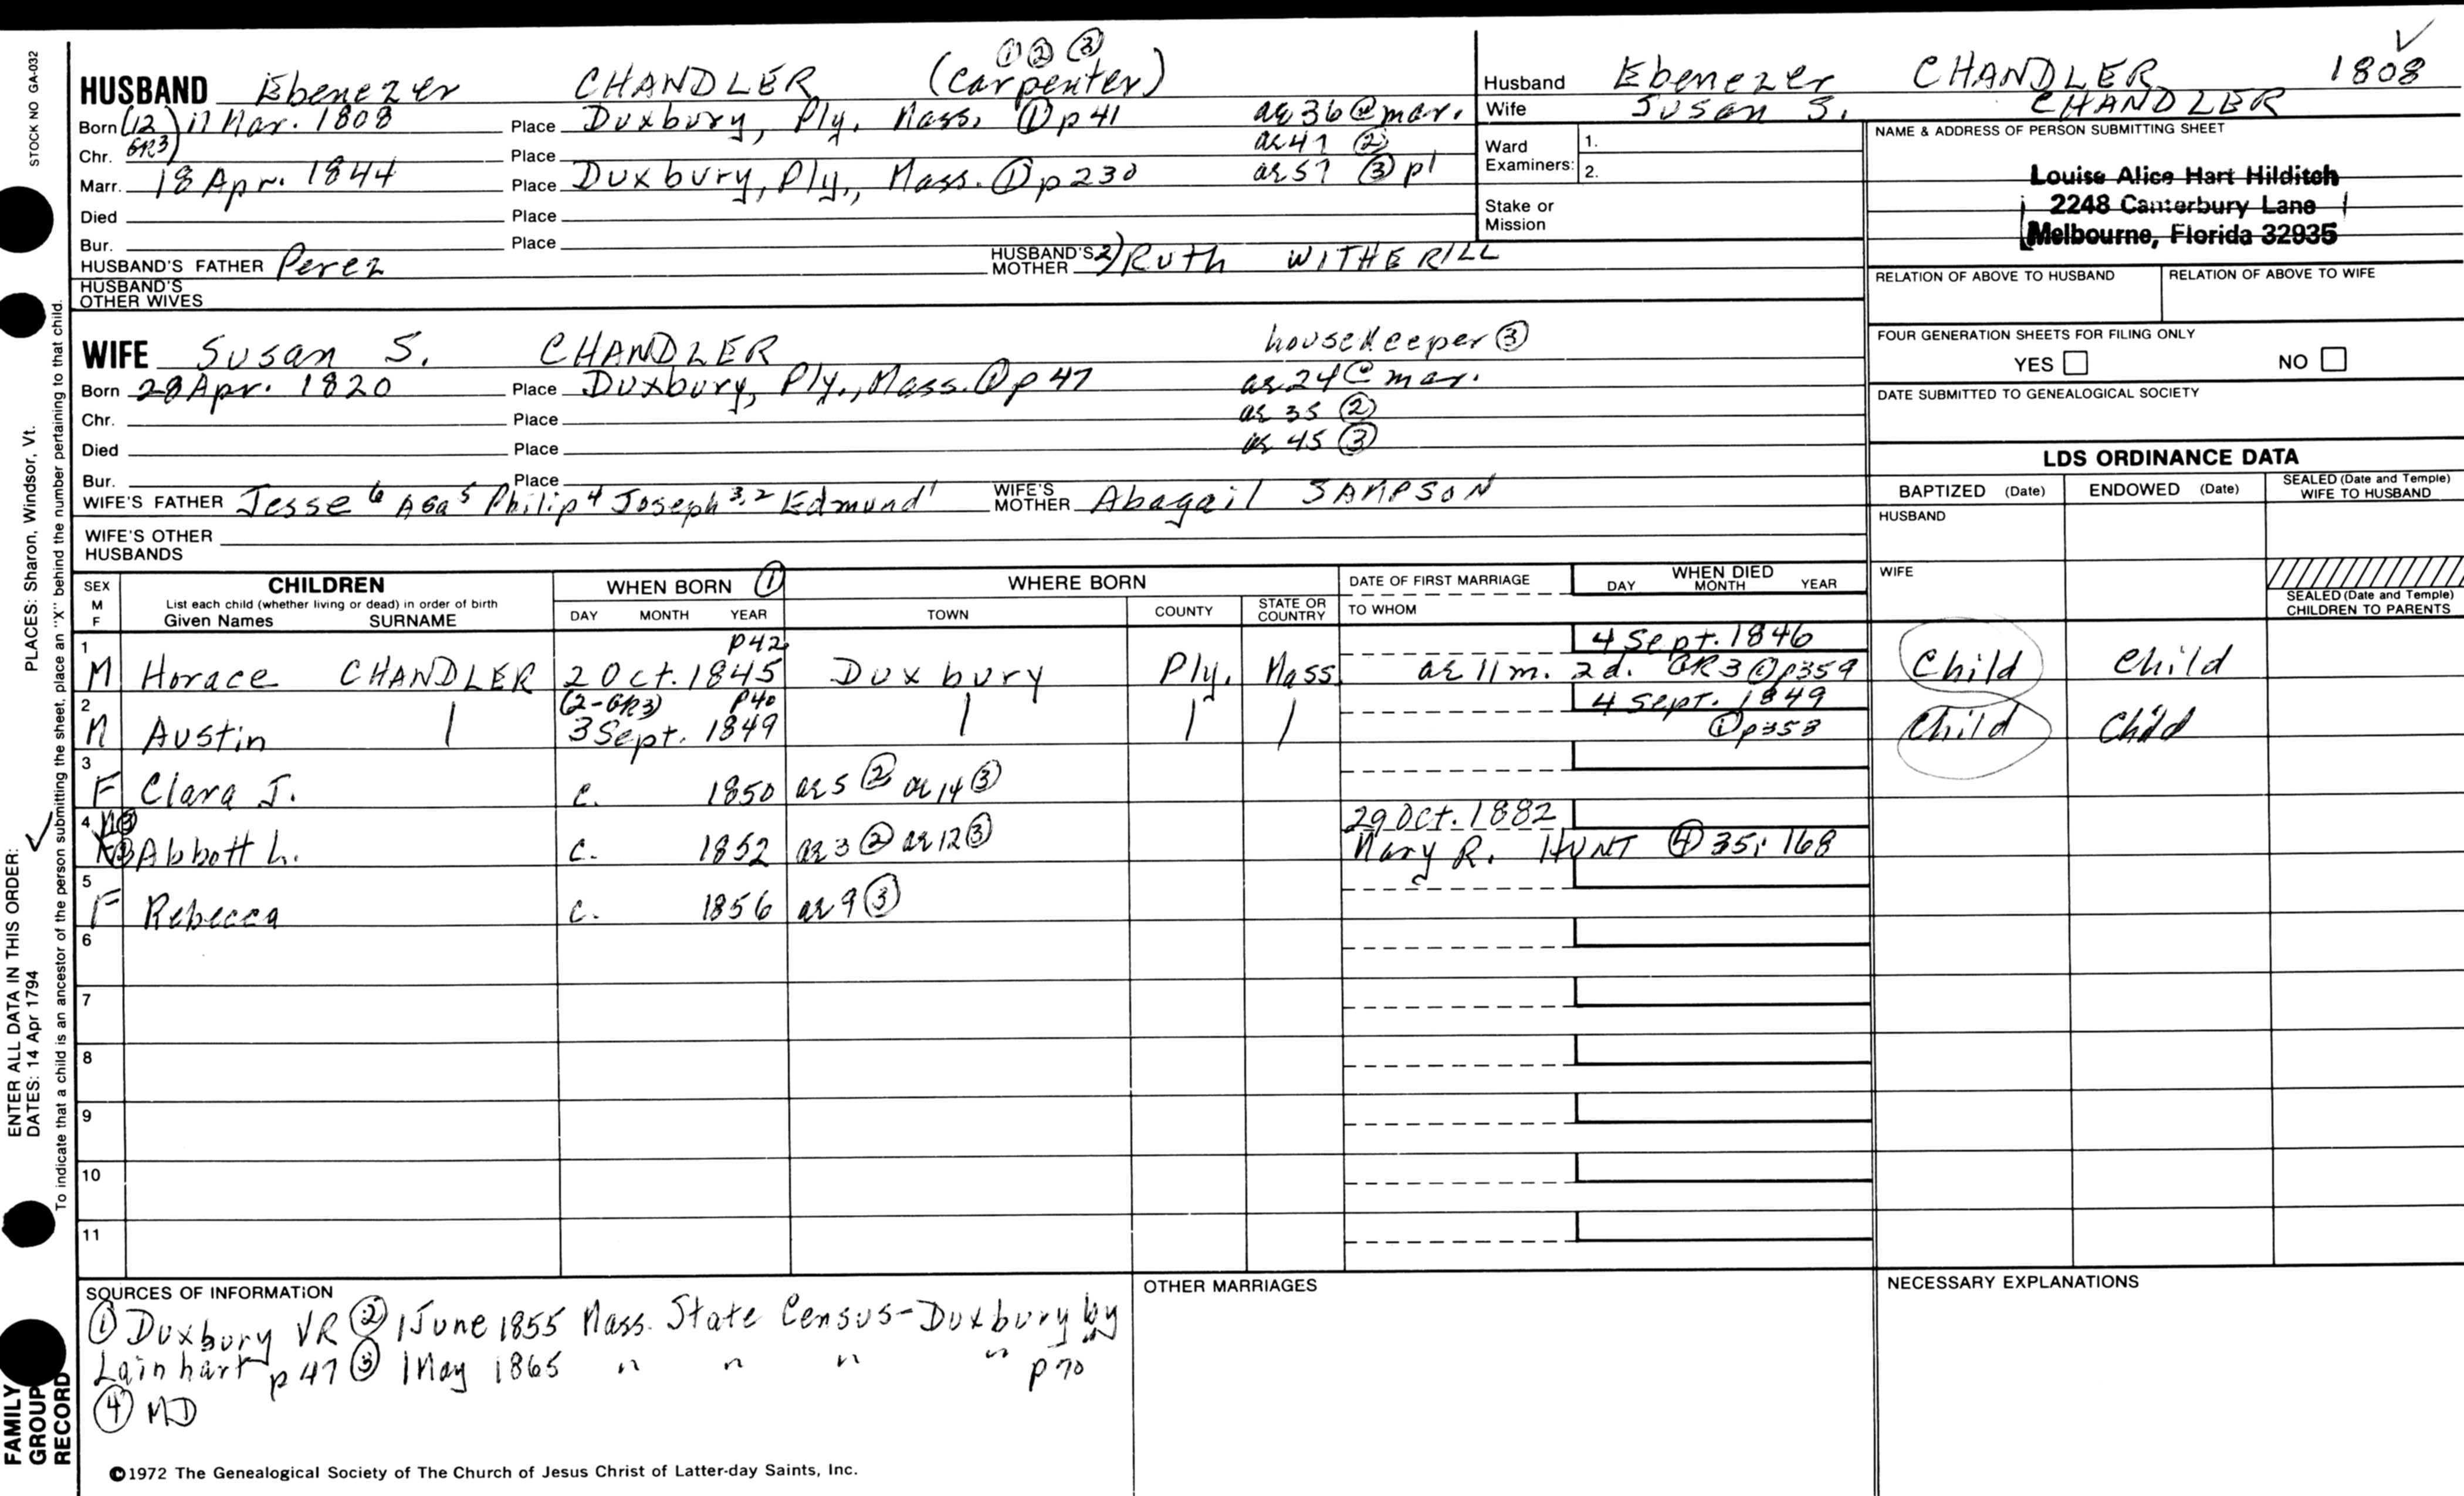 STOCK NO GA-032
PLACES: Sharon, Windsor, Vt.
ENTER ALL DATA IN THIS ORDER:
DATES: 14 Apr 1794
To indicate that a child is an ancestor of the person submitting the sheet, place an "X" behind the number pertaining to that child.
FAMILY
GROUP
RECORD
① ② ③
HUSBAND Ebenezer CHANDLER (carpenter)
Born (12 GR3) 17 Mar. 1808 Place Duxbury, Ply. Mass. ① p41 ae 36 @ mar.
Chr. Place ae 47 ②
Marr. 18 Apr. 1844 Place Duxbury, Ply., Mass. ① p230 ae 57 ③ p1
Died Place
Bur. Place
HUSBAND'S FATHER Perez HUSBAND'S MOTHER 2) Ruth WITHERILL
HUSBAND'S OTHER WIVES
WIFE Susan S. CHANDLER housekeeper ③
Born 28 Apr. 1820 Place Duxbury, Ply., Mass. ① p47 ae 24 @ mar.
Chr. Place ae 35 ②
Died Place ae 45 ③
Bur. Place
WIFE'S FATHER Jesse 6 Asa 5 Philip 4 Joseph 3,2 Edmund 1 WIFE'S MOTHER Abagail SAMPSON
WIFE'S OTHER HUSBANDS
Husband Ebenezer CHANDLER 1808
Wife Susan S. CHANDLER
Ward Examiners: 1.
2.
Stake or Mission
NAME & ADDRESS OF PERSON SUBMITTING SHEET
Louise Alice Hart Hilditch
2248 Canterbury Lane
Melbourne, Florida 32935
RELATION OF ABOVE TO HUSBAND RELATION OF ABOVE TO WIFE
FOUR GENERATION SHEETS FOR FILING ONLY
YES NO
DATE SUBMITTED TO GENEALOGICAL SOCIETY
LDS ORDINANCE DATA
BAPTIZED (Date) ENDOWED (Date) SEALED (Date and Temple) WIFE TO HUSBAND
HUSBAND
WIFE
SEALED (Date and Temple) CHILDREN TO PARENTS
SEX M F CHILDREN WHEN BORN ① WHERE BORN DATE OF FIRST MARRIAGE WHEN DIED
List each child (whether living or dead) in order of birth
Given Names SURNAME DAY MONTH YEAR TOWN COUNTY STATE OR COUNTRY TO WHOM DAY MONTH YEAR
1 p42 4 Sept. 1846
M Horace CHANDLER 2 Oct. 1845 Duxbury Ply. Mass. ae 11 m. 2 d. GR3 ① p359 Child Child
2 (2-GR3) p40 4 Sept. 1849
M Austin | 3 Sept. 1849 | | | ① p353 Child Child
3
F Clara J. c. 1850 ae 5 ② ae 14 ③
4 M③ 29 Oct. 1882
Abbott L. c. 1852 ae 3 ② ae 12 ③ Mary R. HUNT ④ 35: 168
5
F Rebecca c. 1856 ae 9 ③
6
7
8
9
10
11
SOURCES OF INFORMATION
① Duxbury VR ② 1 June 1855 Mass. State Census-Duxbury by
Lainhart p 47 ③ 1 May 1865 " " " " p 70
④ MD
OTHER MARRIAGES
NECESSARY EXPLANATIONS
©1972 The Genealogical Society of The Church of Jesus Christ of Latter-day Saints, Inc.